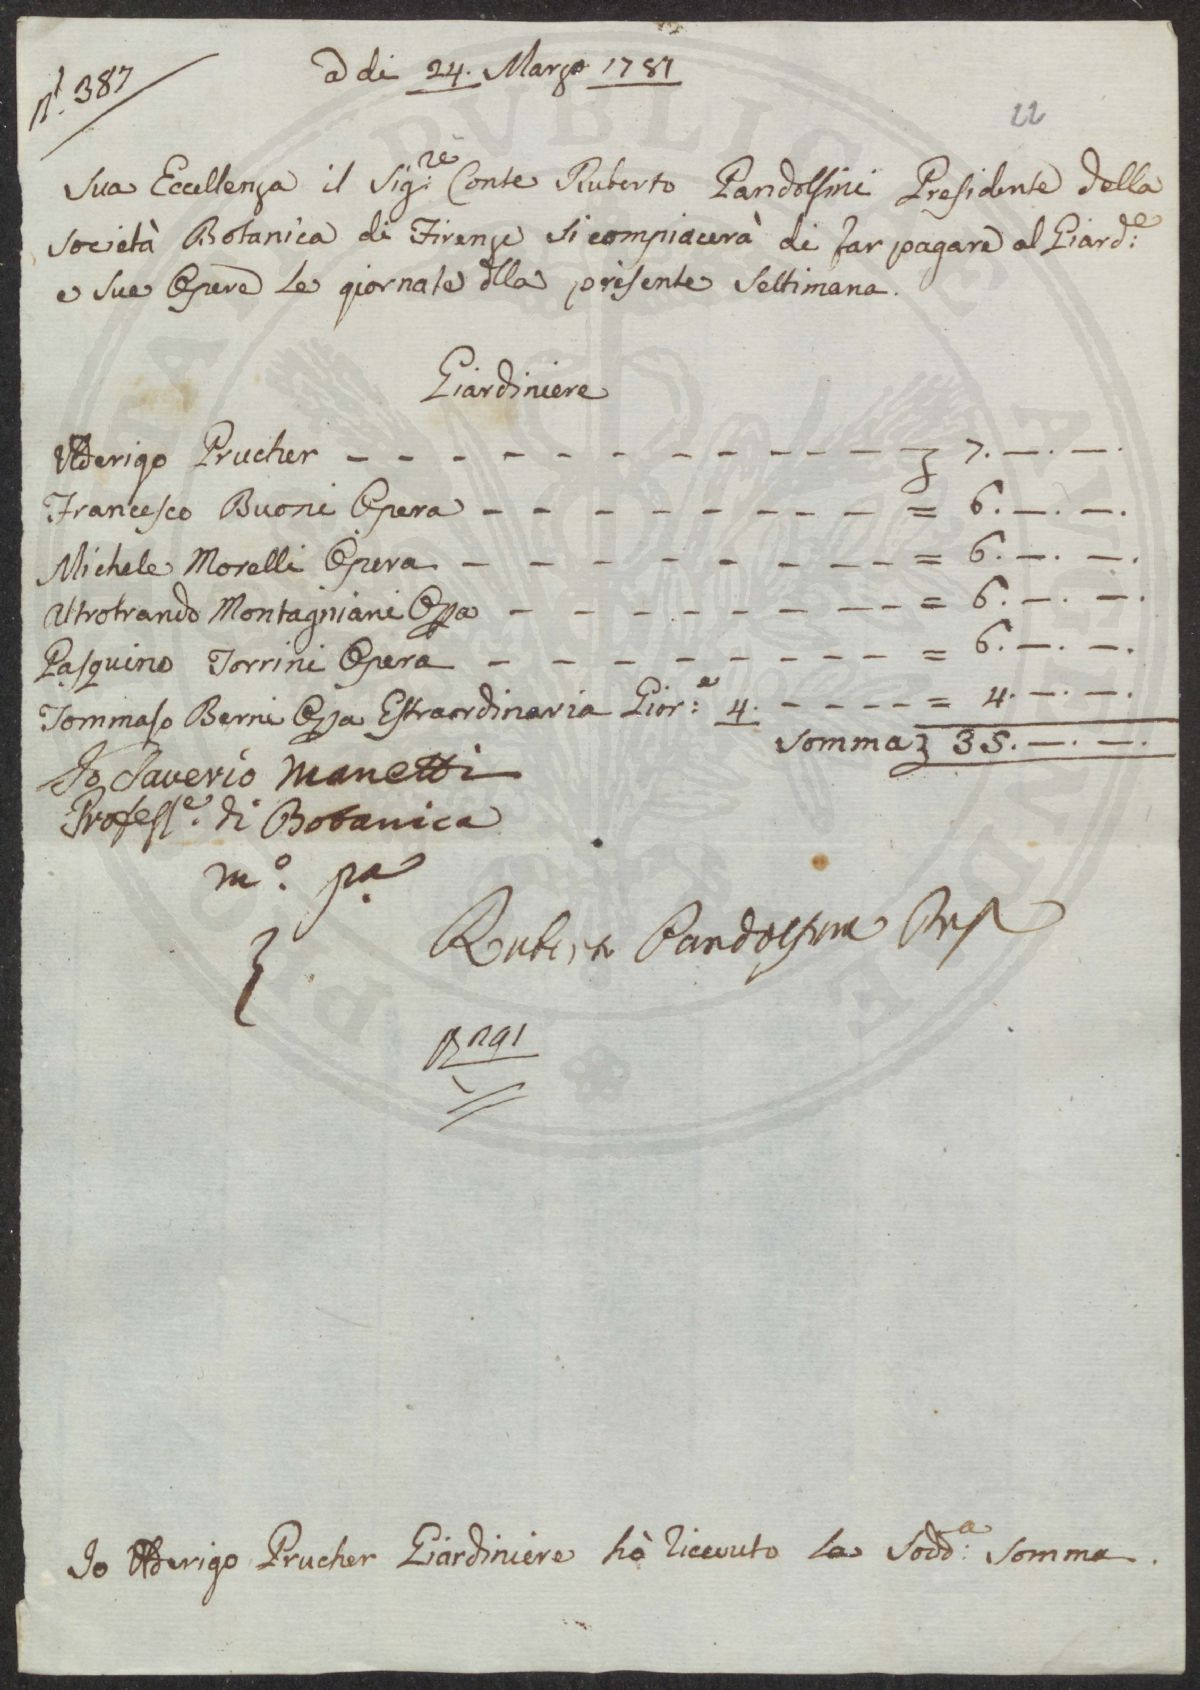 N.° 387
A di 24. Marzo 1781
22
Sua Eccellenza il Sig.re Conte Ruberto Pandolfini Presidente della
Società Botanica di Firenze si compiacerà di far pagare al Giard.e
e sue Opere le giornate dlla presente Settimana.
Giardiniere
Uderigo Prucher - - - - - - - - - - - 7. —. —.
Francesco Buoni Opera - - - - - - - - = 6. —. —.
Michele Morelli Opera - - - - - - - - = 6. —. —.
Montagniani Opa - - - - - - - - = 6. —. —.
Pasquino Torrini Opera - - - - - - - - = 6. —. —.
Tommaso Berni Opa Estraordinaria Gior.e 4. - - - - - = 4. —. —.
Somma 35. —. —.
Io Saverio Manetti
Profess.e di Botanica
m.° pa
Ruberto Pandolfini Pres
Io Uderigo Prucher Giardiniere hò ricevuto la Sodd.a Somma.
PIO